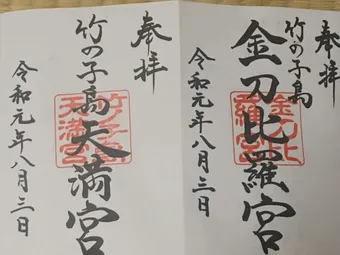 奉拝
竹の子島
金刀比羅宮
令和元年八月三日
金刀比
羅宮
奉拝
竹の子島天満宮
令和元年八月三日
竹子島
天満宮